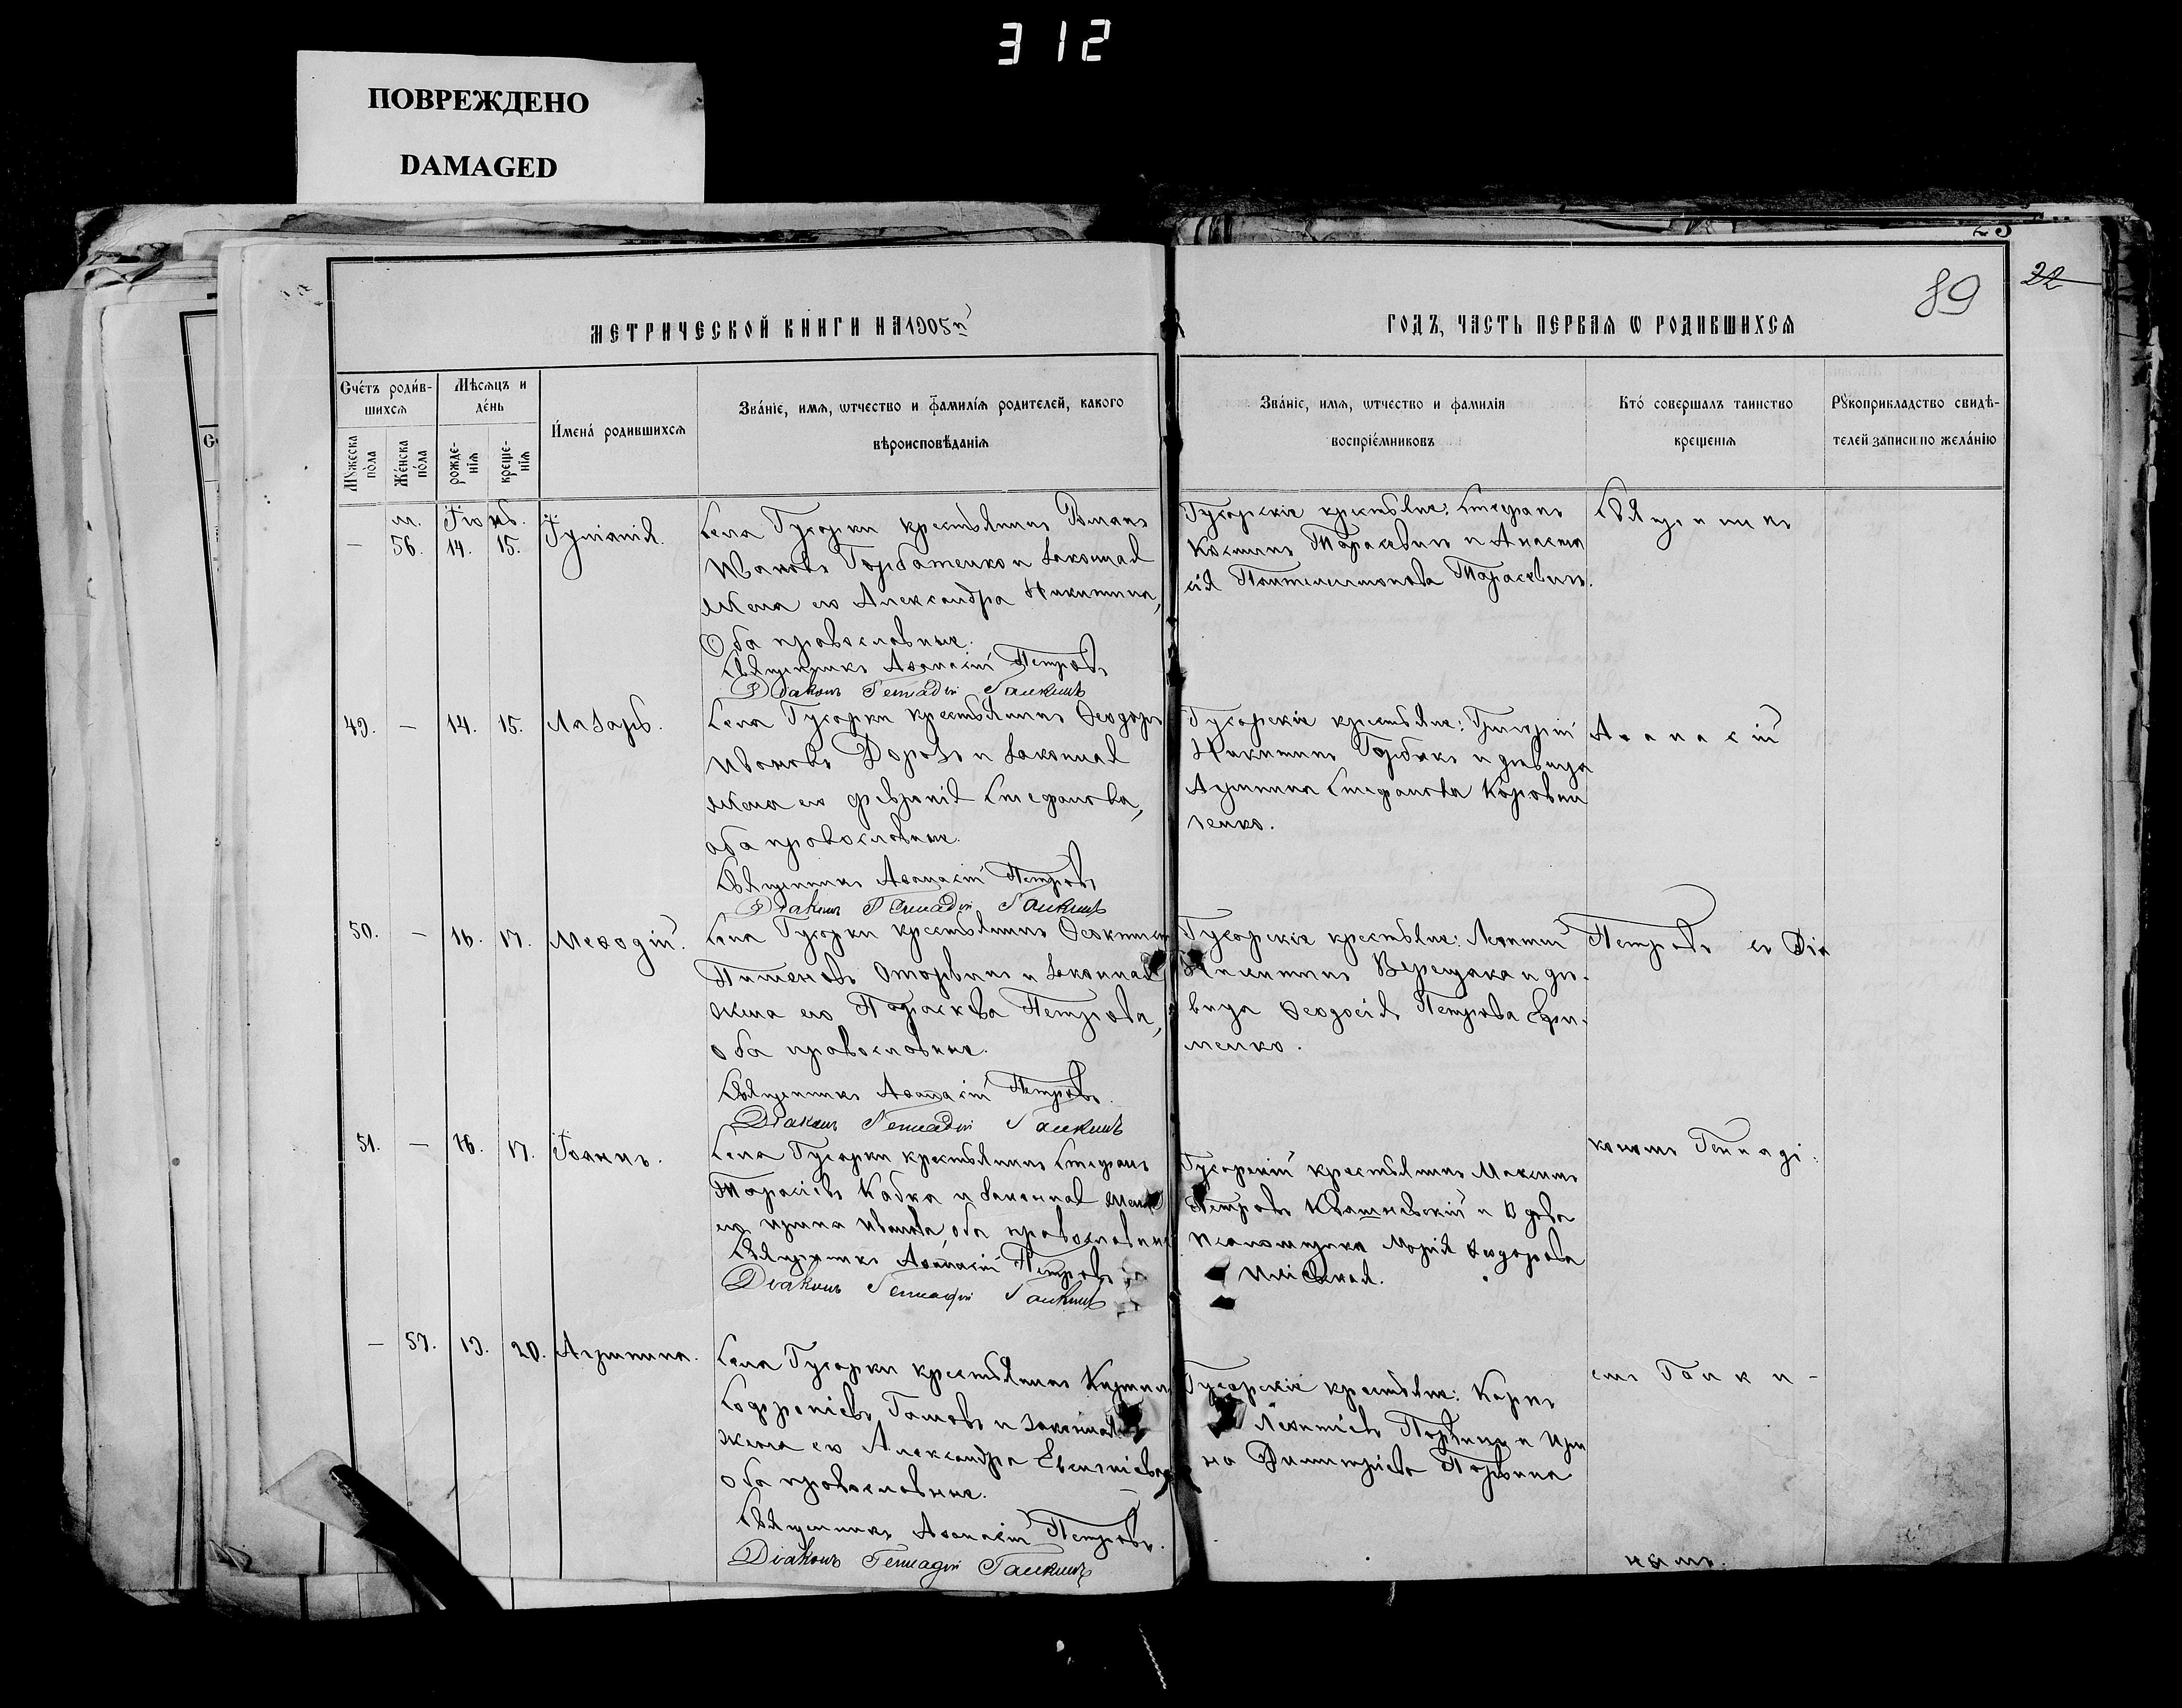 312
ПОВРЕЖДЕНО
DAMAGED
89
22
МЕТРИЧЕСКОЙ КНИГИ НА 1905й
ГОДЪ, ЧАСТЬ ПЕРВАЯ Ѡ РОДИВШИХСЯ
Счéтъ роди́в-
шихся
Мѣсяцъ и
де́нь
И҆мена́ родившихся
Зва́нїе, имя, ѡтчество и фамилїя родителей, какого
вѣроисповѣданїя
Мꙋжеска
по́ла
Же́нска
по́ла
рожде-
нїя
креще-
нїя
Зва́нїе, имя, ѡтчество и фамилїя
воспрїе́мниковъ
Кто́ совершалъ таинство
крещенїя
Рꙋкоприкладство свидѣ-
телей записи по жела́нїю
Іюнь.
— 56. 14. 15. Іуліанія.
Села Гусарки крестьянинъ Романъ
Ивановъ Горбатенко и законная
жена его Александра Никитина,
Оба православные.
Священникъ Аѳанасій Петровъ
Діаконъ Геннадій Галкинъ
Гусарскіе крестьяне: Стефанъ
Косминъ Тарасевичъ и Анаста
сія Пантелеимонова Тарасевичъ.
Священникъ
49. — 14. 15. Лазарь.
Села Гусарки крестьянинъ Ѳеодоръ
Ивановъ Дорозъ и законная
жена его Февронія Стефанова,
оба православные.
Священникъ Аѳанасій Петровъ
Діаконъ Геннадій Галкинъ
Гусарскіе крестьяне: Григорій
Никитинъ Горбикъ и дѣвица
Агрипина Стефанова Корови
ленко.
Аѳанасій
50. — 16. 17. Меѳодій.
Села Гусарки крестьянинъ
Пименовъ Оторвинъ и законная
жена его Параскева Петрова,
оба православные.
Священникъ Аѳанасій Петровъ.
Діаконъ Геннадій Галкинъ
Гусарскіе крестьяне: Леонтій
Верещака и дѣ-
вица Ѳеодосія Петрова Ефи-
менко.
Петровъ съ Діа
51. — 16. 17. Іоаннъ.
Села Гусарки крестьянинъ Стефанъ
Тарасіевъ Кабка и законная жена
его Ирина Иванова, оба православные
Священникъ Аѳанасій Петровъ
Діаконъ Геннадій Галкинъ
Гусарскій крестьянинъ Максимъ
Петровъ Квашневскій и вдова
псаломщика Марія Ѳеодорова
кономъ Геннаді-
— 57. 19. 20. Агрипина.
Села Гусарки крестьянинъ
Софроніевъ Гамовъ и законная
жена его Александра Евгеніева
оба православные.
Священникъ Аѳанасій Петровъ.
Діаконъ Геннадій Галкинъ
Гусарскіе крестьяне: Карпъ
Леонтіевъ и Ири
на Димитріева
емъ Галки-
нымъ.